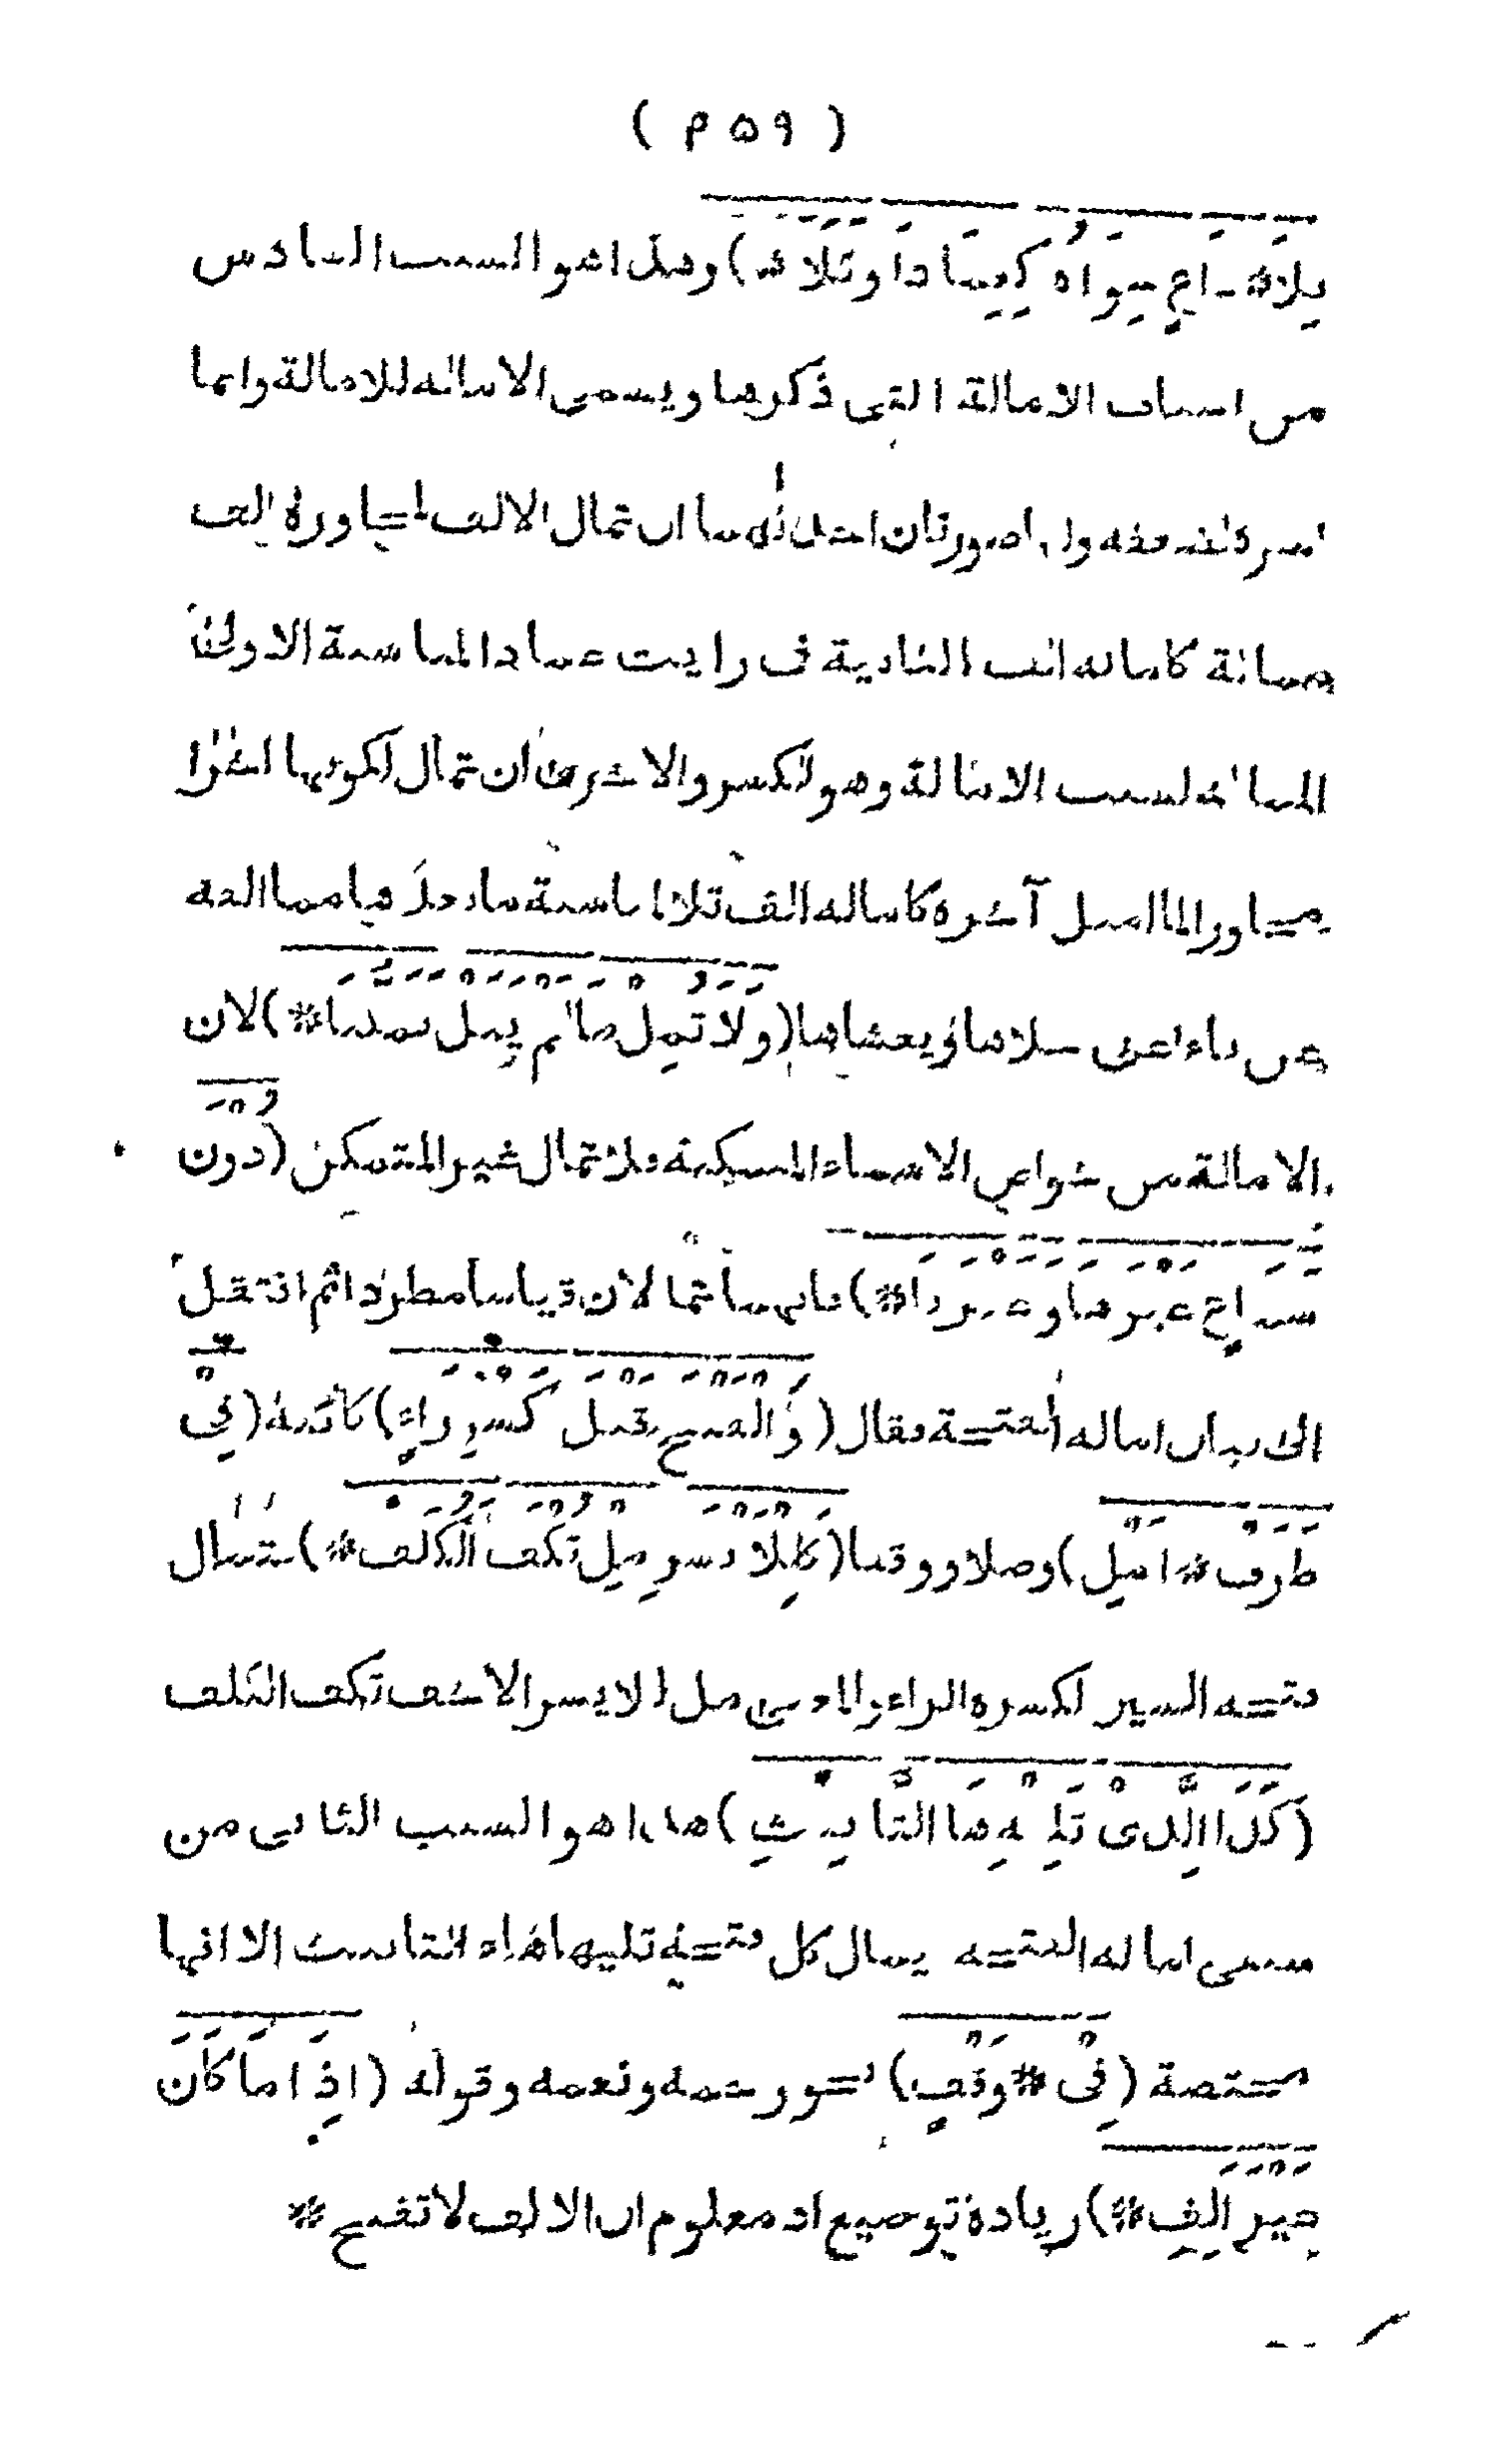 ( ٤٥٩ )
بِلاَ * دَاعٍ سِوَاهُ كَعِمَادَا وَتَلاَ ) وهذا هو السبب السادس
من اسباب الامالة التى ذكرها ويسمى الامالة للامالة وانما
اخره لضعفه وله صورتان احداهما ان تمال الالف لمجاورة الف
ممالة كامالة الف الثانية فى رايت عمادا لمناسبة الاولى
الممالة لسبب الامالة وهو الكسر والاخرى ان تمال لكونها اخرا
مجاور لما اميل آخره كامالة الف تلا لمناسبة ما بعدها مما الفه
عن ياء اعنى جلاها ويغشاها ( وَلاَ تُمِلْ مَا لَمْ يَنَلْ تَمَكُّنَا * ) لان
الامالة من خواص الاسماء المتمكنة فلا تمال غير المتمكن ( دُونَ
سَمَاعٍ غَيْرَهَا وَغَيْرَنَا * ) فانهما تمالان قياسا مطردا ثم انتقل
الى بيان امالة الفتحة فقال ( وَالْفَتْحَ قَبْلَ كَسْرِ رَاءٍ ) كائنة ( فِى
طَرَفْ * اَمِلْ ) وصلا ووقفا ( كَلِلاَيْسَرِ مِلْ تُكْفَ الْكُلَفْ * ) بتمال
فتحة السين لكسرة الراء والمعنى مل للايسر الاخف تكف الكلف
( كَذَا الَّذِى تَلِيهِ هَا التَّانِيثِ ) هذا هو السبب الثانى من
سببى امالة الفتحة يمال كل فتحة تليها هاء التانيث الا انها
مختصة ( فِى * وَقْفٍ ) نحو رحمه ونعمه وقوله ( اِذَا مَا كَانَ
غَيْرَ اَلِفِ * ) زيادة توضيح اذ معلوم ان الالف لا تفتح *